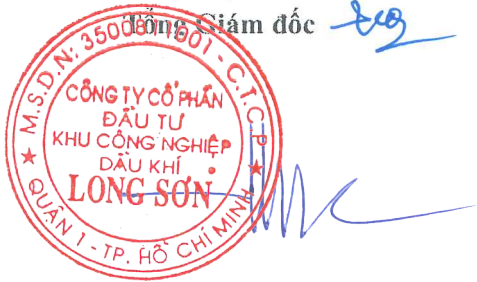 Tổng Giám đốc
M.S.D.N: 3500811001 - C.T.C.P
CÔNG TY CỔ PHẦN
ĐẦU TƯ
KHU CÔNG NGHIỆP
DẦU KHÍ
LONG SƠN
QUẬN 1 - TP. HỒ CHÍ MINH